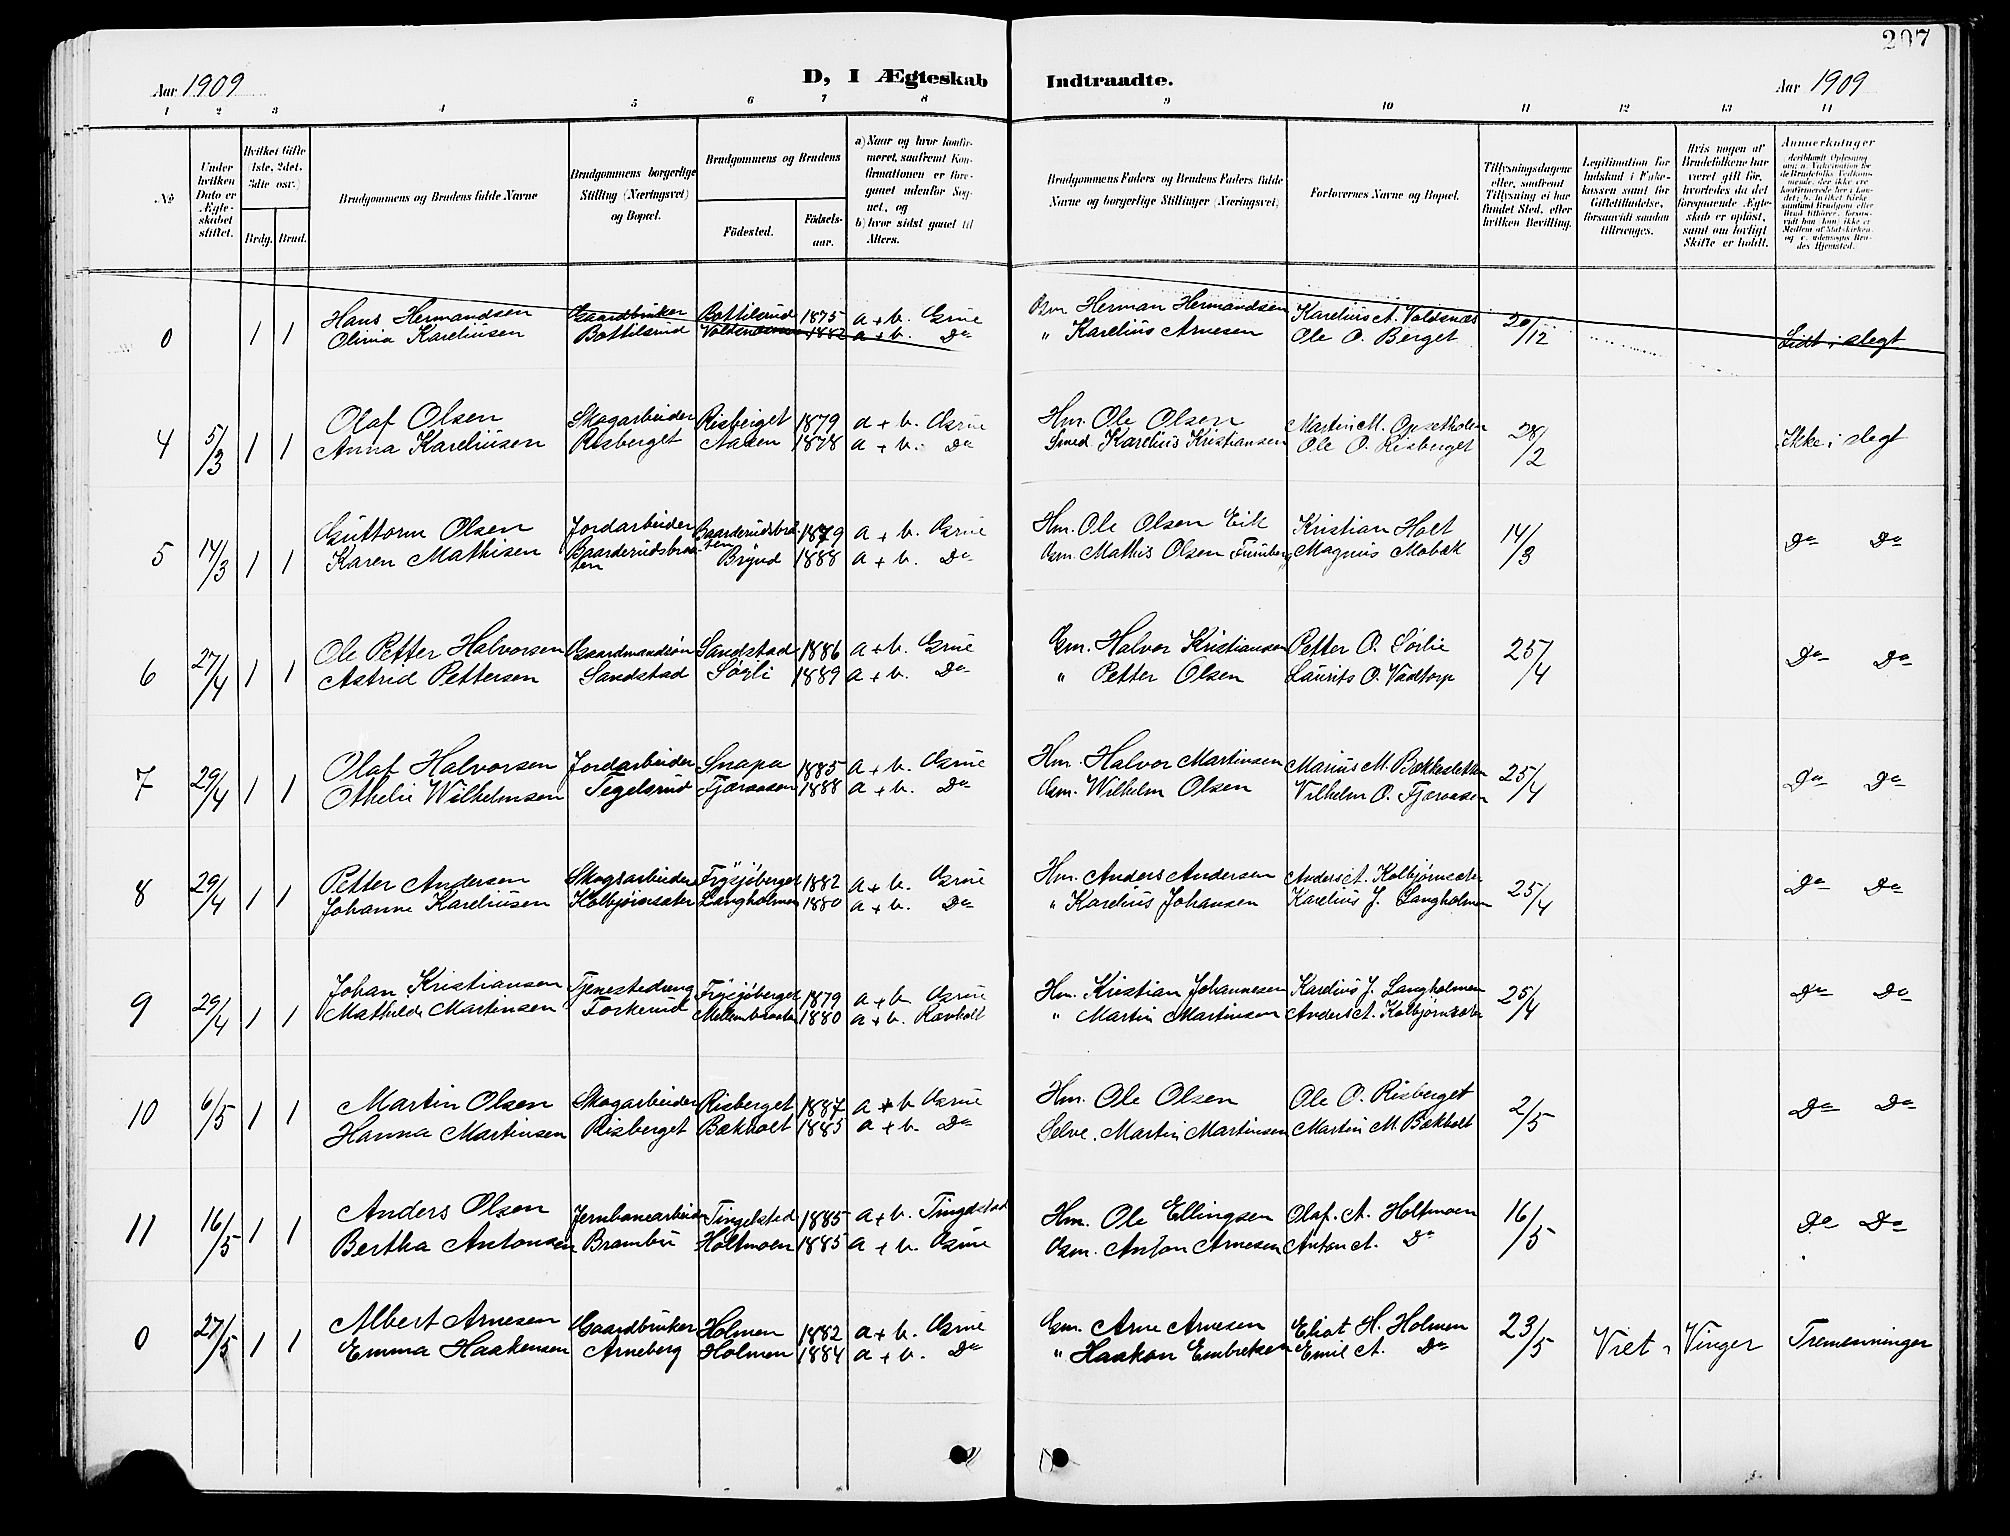 207
Aar 1909
D, I Ægteskab Indtraadte.
Aar 1909
1 2 3 4 5 6 7 8 9 10 11 12 13 14
No
Under hvilken Dato er Ægteskabet stiftet.
Hvilket Gifte (1ste, 2det, 3die osv.)
Brdg. Brud.
Brudgommens og Brudens fulde Navne
Brudgommens borgerlige Stilling (Næringsvei) og Bopæl.
Brudgommens og Brudens
Fødested. Fødselsaar.
a) Naar og hvor konfirmeret, saafremt Konfirmationen er foregaaet udenfor Sognet, og
b) hvor sidst gaaet til Alters.
Brudgommens Faders og Brudens Faders fulde Navne og borgerlige Stillinger (Næringsvei)
Forlovernes Navne og Bopæl.
Tillysningsdagene eller, saafremt Tillysning ei har fundet Sted, efter hvilken Bevilling.
Legitimation for Indskud i Enkekassen samt for Giftetilladelse, forsaavidt saadan tiltrænges.
Hvis nogen af Brudefolkene har været gift før, hvorledes da det foregaaende Ægteskab er opløst, samt om lovligt Skifte er holdt.
Anmerkninger
0 1 1 Hans Hermandsen Gaardbruker Bottilsrud 1875 a + b. Grue Gm. Herman Hermandsen Karelius A. Voldsnæs 20/12 Lidt i slegt
Olina Kareliusen Bottilsrud 1882 a + b. Do " Karelius Arnesen Ole O. Berget
4 5/3 1 1 Olaf Olsen Skogarbeider Risberget 1879 a + b. Grue Hm. Ole Olsen Martin M. Opsetholm 28/2 Ikke i slegt
Anna Kareliusen Risberget 1878 a + b. Do Smed Karelius Kristiansen Ole O. Risberget
5 14/3 1 1 Guttorm Olsen Jordarbeider Baarderudsbraaten 1879 a + b. Grue Hm. Ole Olsen Eik Kristian Holt 14/3 Do Do
Karen Mathisen Baarderudsbraaten Brynd 1888 a + b. Do Gm. Mathis Olsen Magnus Mobæk
6 27/4 1 1 Ole Petter Halvorsen Gaardmandssøn Sandstad 1886 a + b. Grue Gm. Halvor Kristiansen Petter O. Sørlie 25/4 Do Do
Astrid Pettersen Sandstad Sørli 1889 a + b. Do " Petter Olsen Laurits O. Vadtorp
7 29/4 1 1 Olaf Halvorsen Jordarbeider Snapa 1885 a + b. Grue Hm. Halvor Martinsen Marius M. Bækkesletten 25/4 Do Do
Othelie Wilhelmsen Tegelsrud Fjæraasen 1888 a + b. Do Gm. Wilhelm Olsen Vilhelm O. Fjæraasen
8 29/4 1 1 Petter Andersen Skogsarbeider Frysjøberget 1882 a + b. Grue Hm. Anders Andersen Anders A. Kolbjørnsæter 25/4 Do Do
Johanne Kareliusen Kolbjørnsæter Langholmen 1880 a + b. Do " Karelius Johansen Karelius J. Langholmen
9 29/4 1 1 Johan Kristiansen Tjenestedreng Frysjøberget 1879 a + b Grue Hm. Kristian Johannesen Karelius J. Langholmen 25/4 Do Do
Mathilde Martinsen Torkerud Mellembraaten 1880 a + b. Ravholt " Martin Martinsen Anders A. Kolbjørnsæter
10 6/5 1 1 Martin Olsen Skogarbeider Risberget 1887 a + b Grue Hm. Ole Olsen Ole O. Risberget 2/5 Do Do
Hanna Martinsen Risberget Bækholt 1885 a + b. Do Selve. Martin Martinsen Martin M. Bækholt
11 16/5 1 1 Anders Olsen Jernbanearbeider Tingelstad 1885 a + b. Tingelstad Hm. Ole Ellingsen Olaf. A. Holtmoen 16/5 Do Do
Bertha Antonsen Brambu Holtmoen 1885 a + b. Grue Gm. Anton Arnesen Anton A. Do
0 27/5 1 1 Albert Arnesen Gaardbruker Holmen 1882 a + b. Grue Gm. Arne Arnesen Eliot H. Holmen 23/5 Viet i Vinger Tremenninger
Emma Haakensen Arneberg Holmen 1884 a + b. Do " Haakon Embretsen Emil A. Do